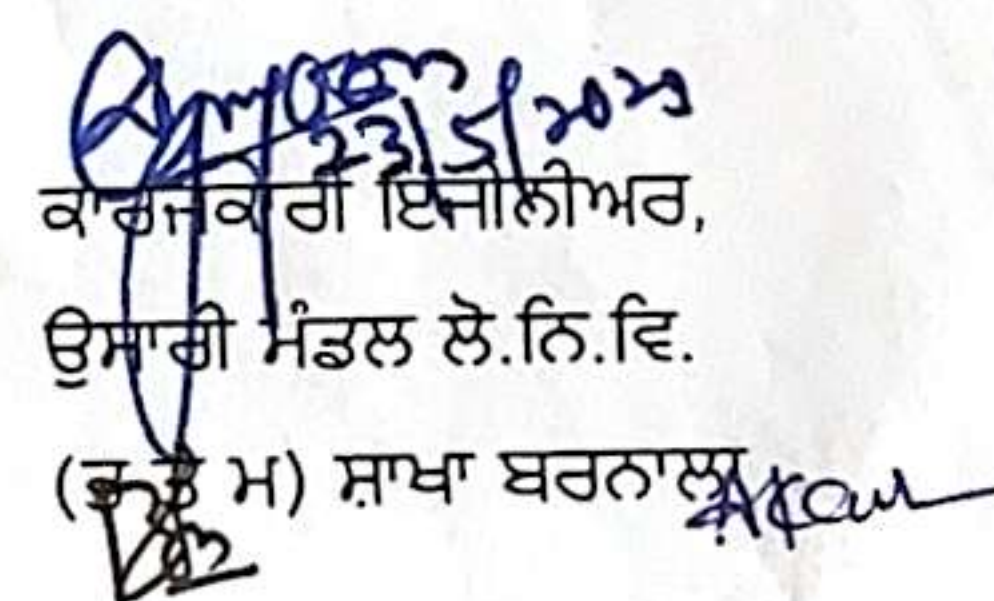 23/5/2023
ਕਾਰਜਕਾਰੀ ਇੰਜੀਨੀਅਰ,
ਉਸਾਰੀ ਮੰਡਲ ਲੋ.ਨਿ.ਵਿ.
(ਭ ਤੇ ਮ) ਸ਼ਾਖਾ ਬਰਨਾਲਾ
AKaur